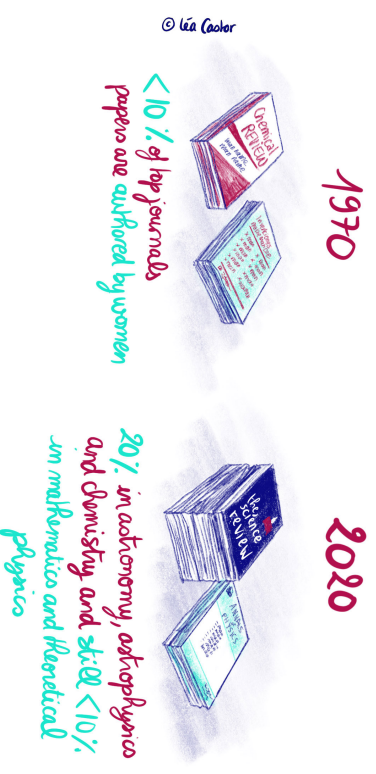 1970
Chemical
REVIEW
<10% of top journals
papers are authored by women
2020
the
science
review
ANNALS
of
PHYSICS
20% in astronomy, astrophysics
and chemistry and still <10%
in mathematics and theoretical
physics
© Léa Castor